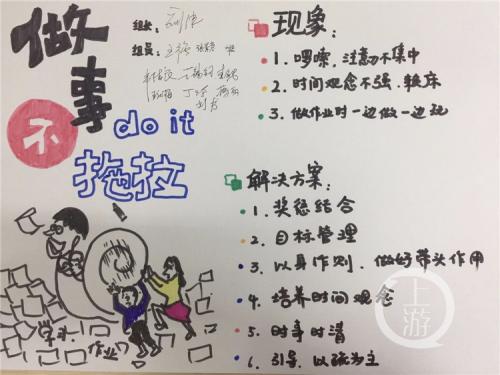 做事
不
do it
拖拉
组长:
组员:
学习
作业
现象:
1. 啰嗦,注意力不集中
2. 时间观念不强、赖床
3. 做作业时一边做一边玩
解决方案:
1. 奖惩结合
2. 目标管理
3. 以身作则、做好带头作用
4. 培养时间观念
5. 时事时清
6. 引导、以疏为主
上游